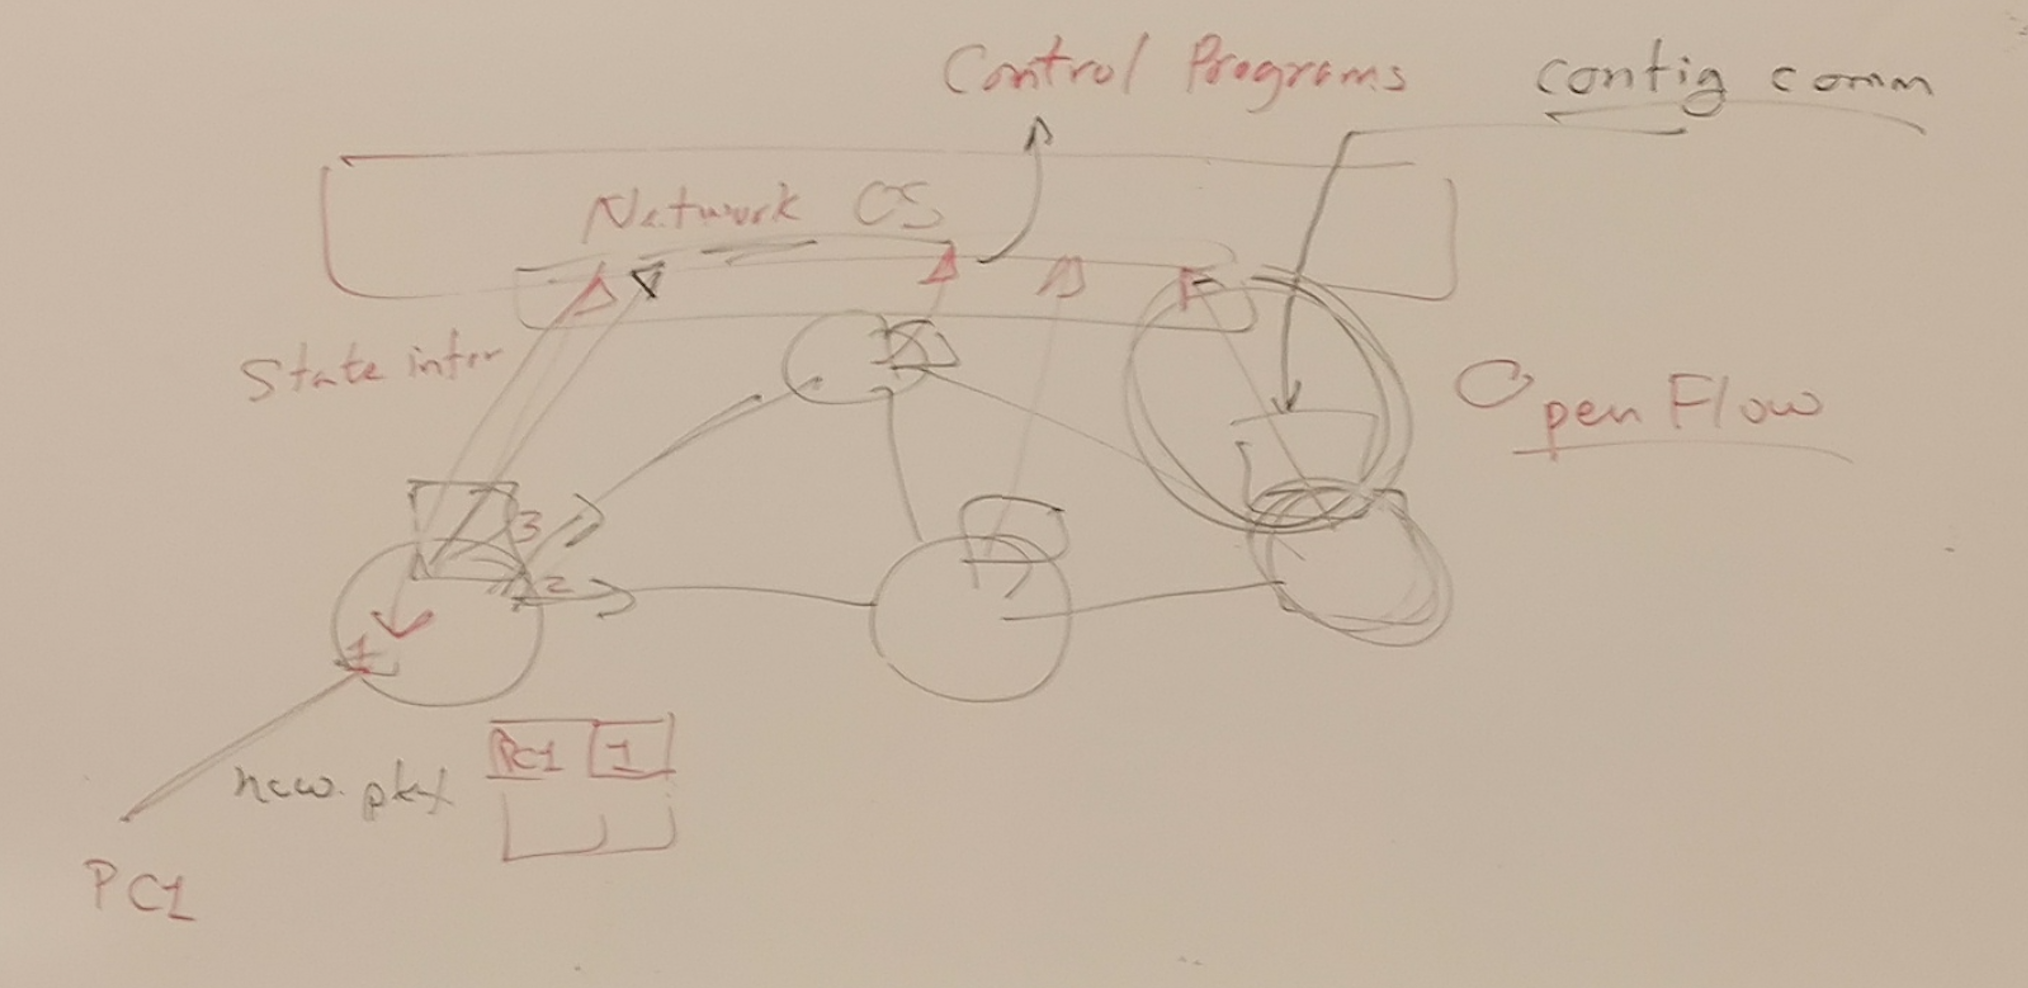 Control Programs
config comm
Network OS
State infor
Open Flow
3
2
1
new pkt
PC1 1
PC1